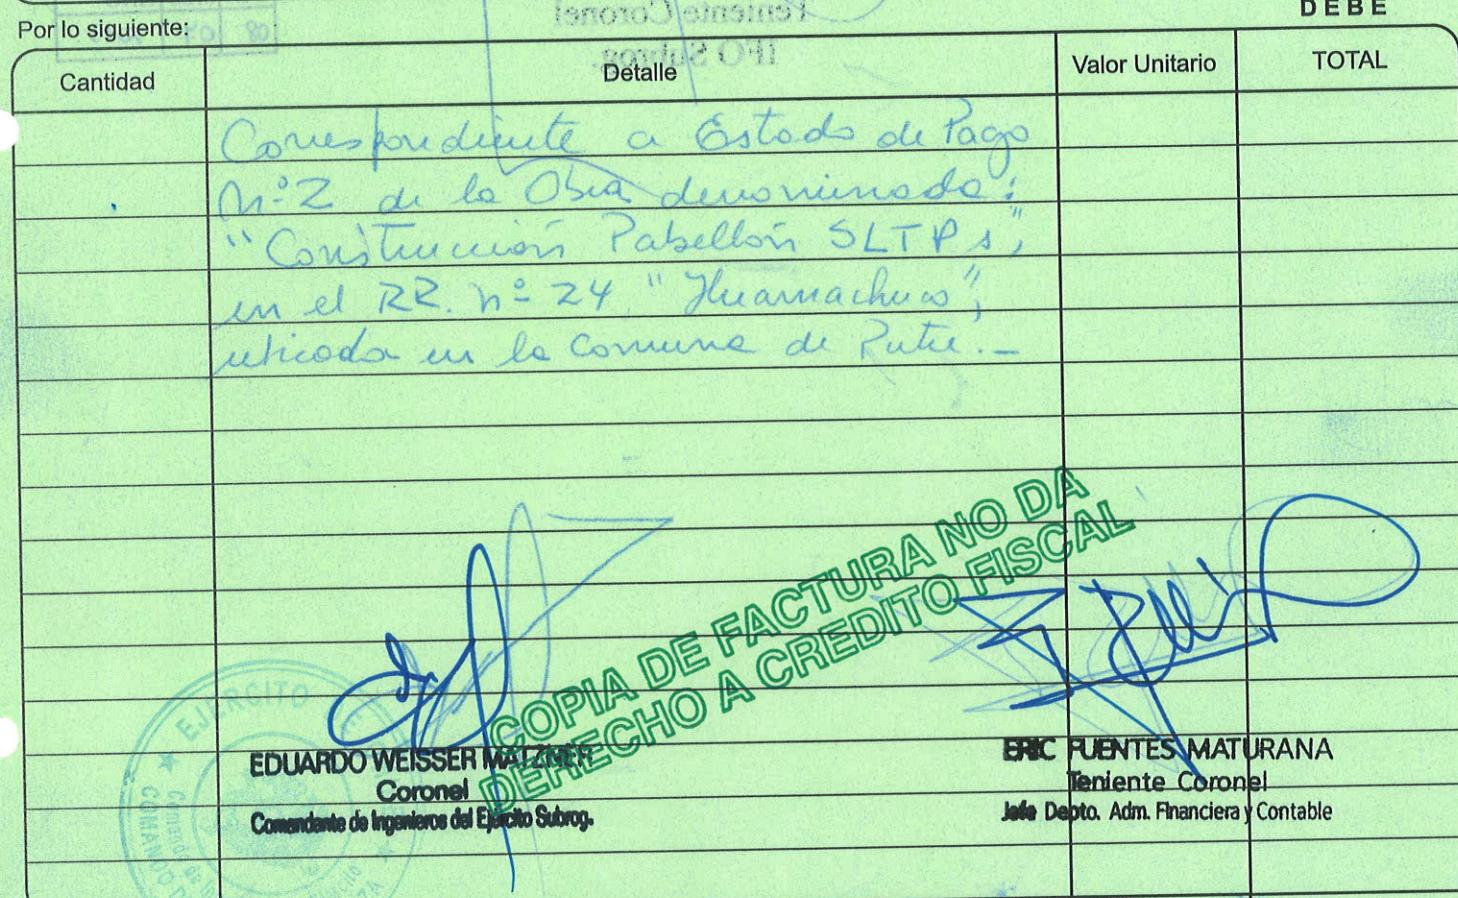 DEBE
Por lo siguiente:
Cantidad Detalle Valor Unitario TOTAL
Correspondiente a Estado de Pago
Nº 2 de la Obra denominada:
"Construcción Pabellón SLTPs",
en el RR. nº 24 "Huamachuco",
ubicada en la Comuna de Putre.-
COPIA DE FACTURA NO DA
DERECHO A CREDITO FISCAL
EDUARDO WEISSER MATZNER
Coronel
Comandante de Ingenieros del Ejército Subrog.
ERIC FUENTES MATURANA
Teniente Coronel
Jefe Depto. Adm. Financiera y Contable
EJERCITO
Teniente Coronel
IFO Subrog.